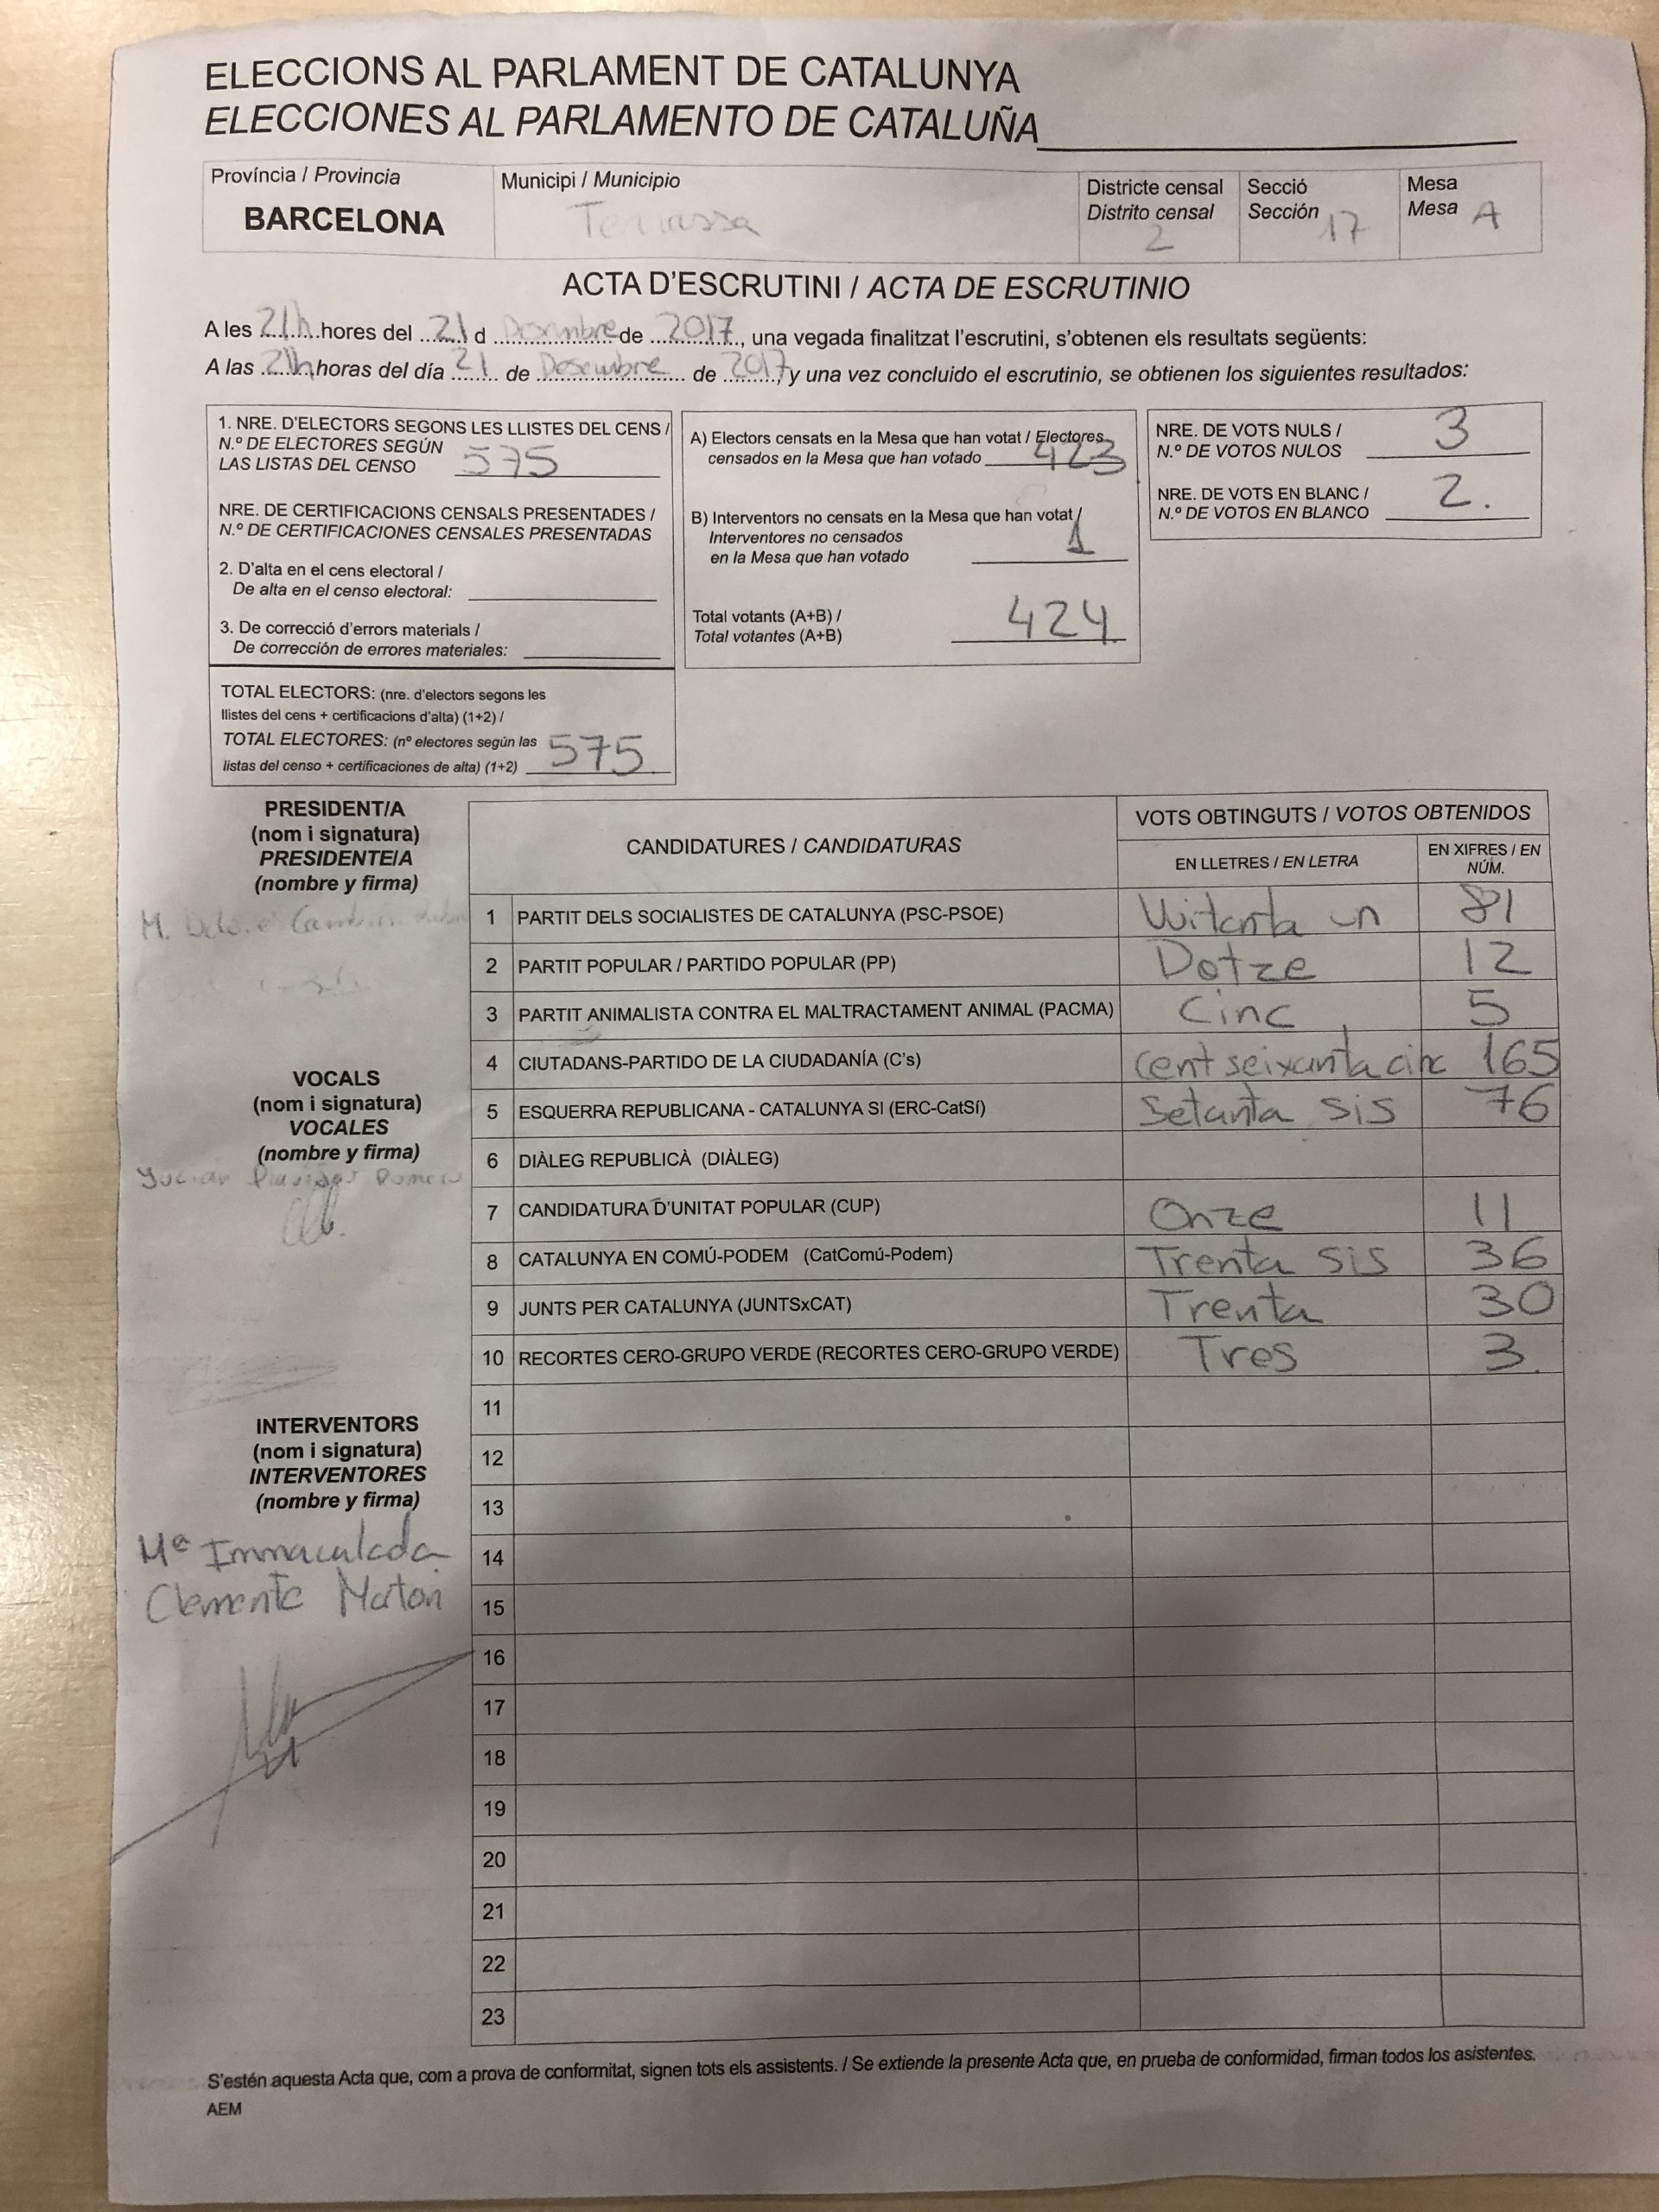 ELECCIONS AL PARLAMENT DE CATALUNYA
ELECCIONES AL PARLAMENTO DE CATALUÑA
Província / Provincia
BARCELONA
Municipi / Municipio
Terrassa
Districte censal
Distrito censal
2
Secció
Sección 17
Mesa
Mesa A
ACTA D'ESCRUTINI / ACTA DE ESCRUTINIO
A les 21h hores del 21 d de 2017, una vegada finalitzat l'escrutini, s'obtenen els resultats següents:
A las 21h horas del día 21 de Desembre de 2017, y una vez concluido el escrutinio, se obtienen los siguientes resultados:
1. NRE. D'ELECTORS SEGONS LES LLISTES DEL CENS /
N.º DE ELECTORES SEGÚN
LAS LISTAS DEL CENSO 575
NRE. DE CERTIFICACIONS CENSALS PRESENTADES /
N.º DE CERTIFICACIONES CENSALES PRESENTADAS
2. D'alta en el cens electoral /
De alta en el censo electoral:
3. De correcció d'errors materials /
De corrección de errores materiales:
TOTAL ELECTORS: (nre. d'electors segons les
llistes del cens + certificacions d'alta) (1+2) /
TOTAL ELECTORES: (nº electores según las
listas del censo + certificaciones de alta) (1+2) 575
A) Electors censats en la Mesa que han votat / Electores
censados en la Mesa que han votado 423
B) Interventors no censats en la Mesa que han votat /
Interventores no censados
en la Mesa que han votado 1
Total votants (A+B) /
Total votantes (A+B) 424
NRE. DE VOTS NULS /
N.º DE VOTOS NULOS 3
NRE. DE VOTS EN BLANC /
N.º DE VOTOS EN BLANCO 2.
PRESIDENT/A
(nom i signatura)
PRESIDENTE/A
(nombre y firma)
M.
VOCALS
(nom i signatura)
VOCALES
(nombre y firma)
INTERVENTORS
(nom i signatura)
INTERVENTORES
(nombre y firma)
Mª Immaculada
Clemente
CANDIDATURES / CANDIDATURAS
VOTS OBTINGUTS / VOTOS OBTENIDOS
EN LLETRES / EN LETRA
EN XIFRES / EN
NÚM.
1 PARTIT DELS SOCIALISTES DE CATALUNYA (PSC-PSOE) Vuitanta un 81
2 PARTIT POPULAR / PARTIDO POPULAR (PP) Dotze 12
3 PARTIT ANIMALISTA CONTRA EL MALTRACTAMENT ANIMAL (PACMA) Cinc 5
4 CIUTADANS-PARTIDO DE LA CIUDADANÍA (C's) Cent seixanta cinc 165
5 ESQUERRA REPUBLICANA - CATALUNYA SI (ERC-CatSí) Setanta sis 76
6 DIÀLEG REPUBLICÀ (DIÀLEG)
7 CANDIDATURA D'UNITAT POPULAR (CUP) Onze 11
8 CATALUNYA EN COMÚ-PODEM (CatComú-Podem) Trenta sis 36
9 JUNTS PER CATALUNYA (JUNTSxCAT) Trenta 30
10 RECORTES CERO-GRUPO VERDE (RECORTES CERO-GRUPO VERDE) Tres 3.
11
12
13
14
15
16
17
18
19
20
21
22
23
S'estén aquesta Acta que, com a prova de conformitat, signen tots els assistents. / Se extiende la presente Acta que, en prueba de conformidad, firman todos los asistentes.
AEM